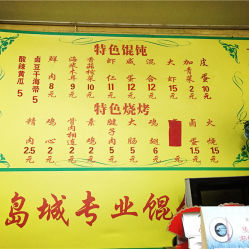 特色馄饨
酸辣黄瓜 5
卤豆干海带 5
鲜肉 8元
海米木耳 9元
香菇榨菜 10元
虾仁 11元
咸蛋 12元
混合 12元
大虾 13元
加青菜 2元
皮蛋 10元
特色烧烤
精肉 2.5元
鸡心 2元
骨肉相连 2.5元
素鸡 2元
鲜子肉 2.5元
大肠 5元
鸡腿 6元
卤蛋 1.5元
火烧 1.5元
岛城专业馄